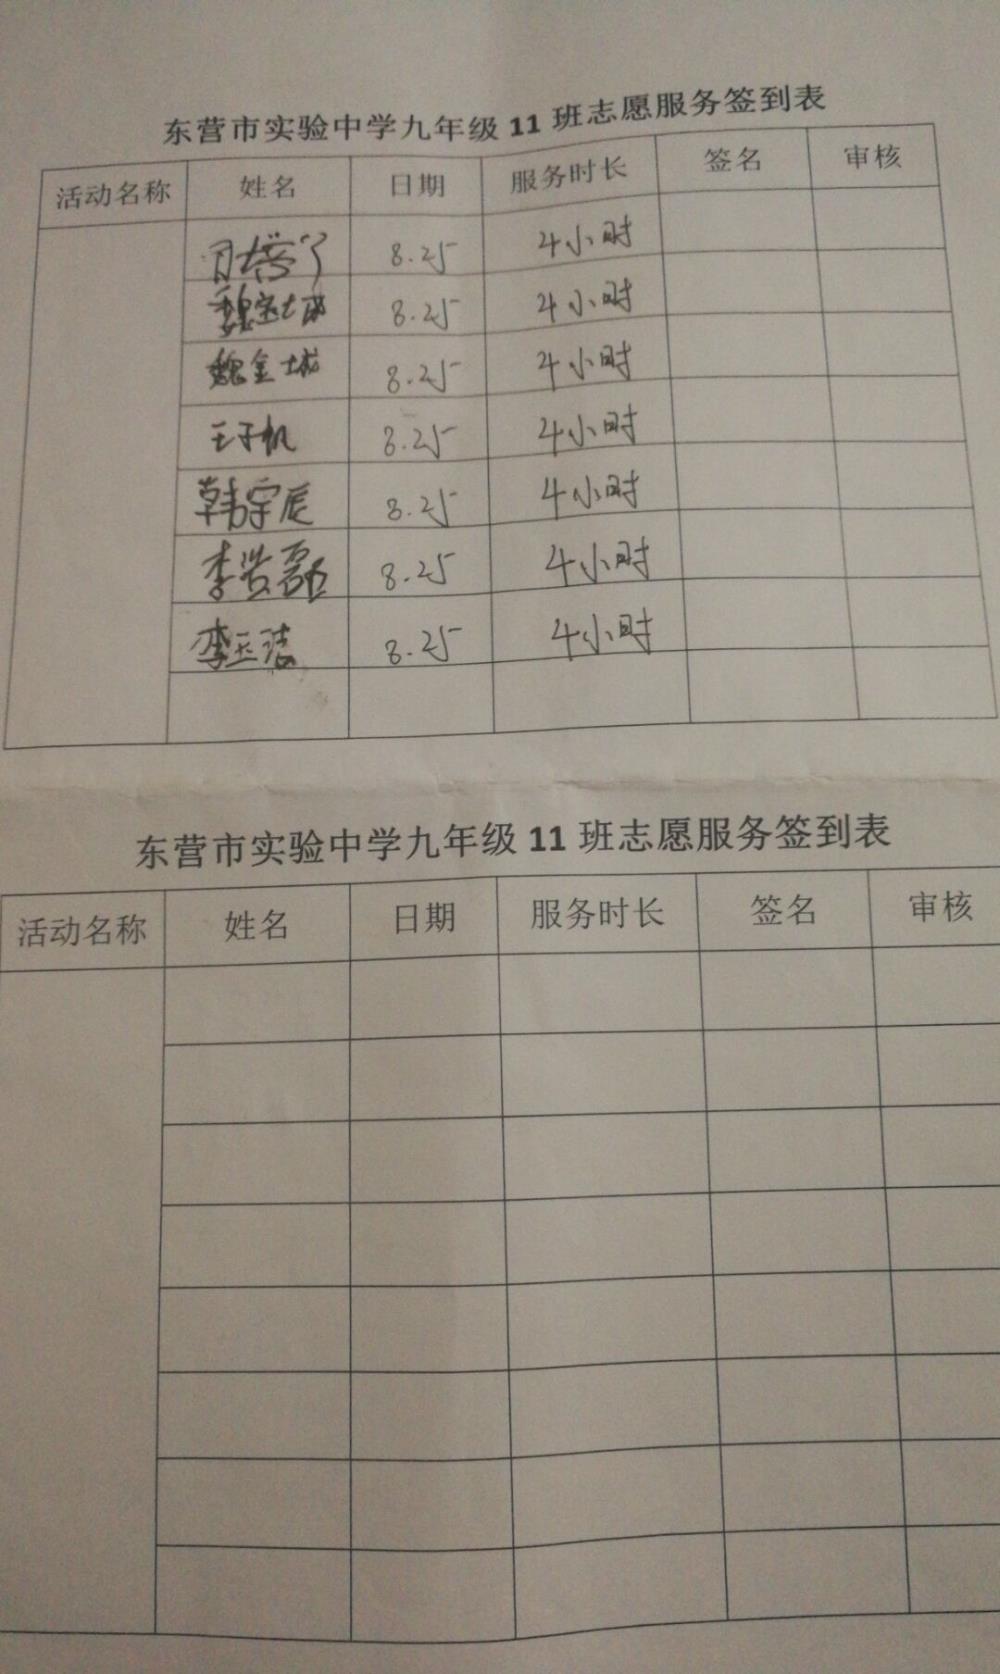 东营市实验中学九年级 11 班志愿服务签到表
活动名称 姓名 日期 服务时长 签名 审核
8.25 4小时
8.25 4小时
魏金城 8.25 4小时
王子帆 8.25 4小时
韩宇辰 8.25 4小时
李浩磊 8.25 4小时
李玉洁 8.25 4小时
东营市实验中学九年级 11 班志愿服务签到表
活动名称 姓名 日期 服务时长 签名 审核